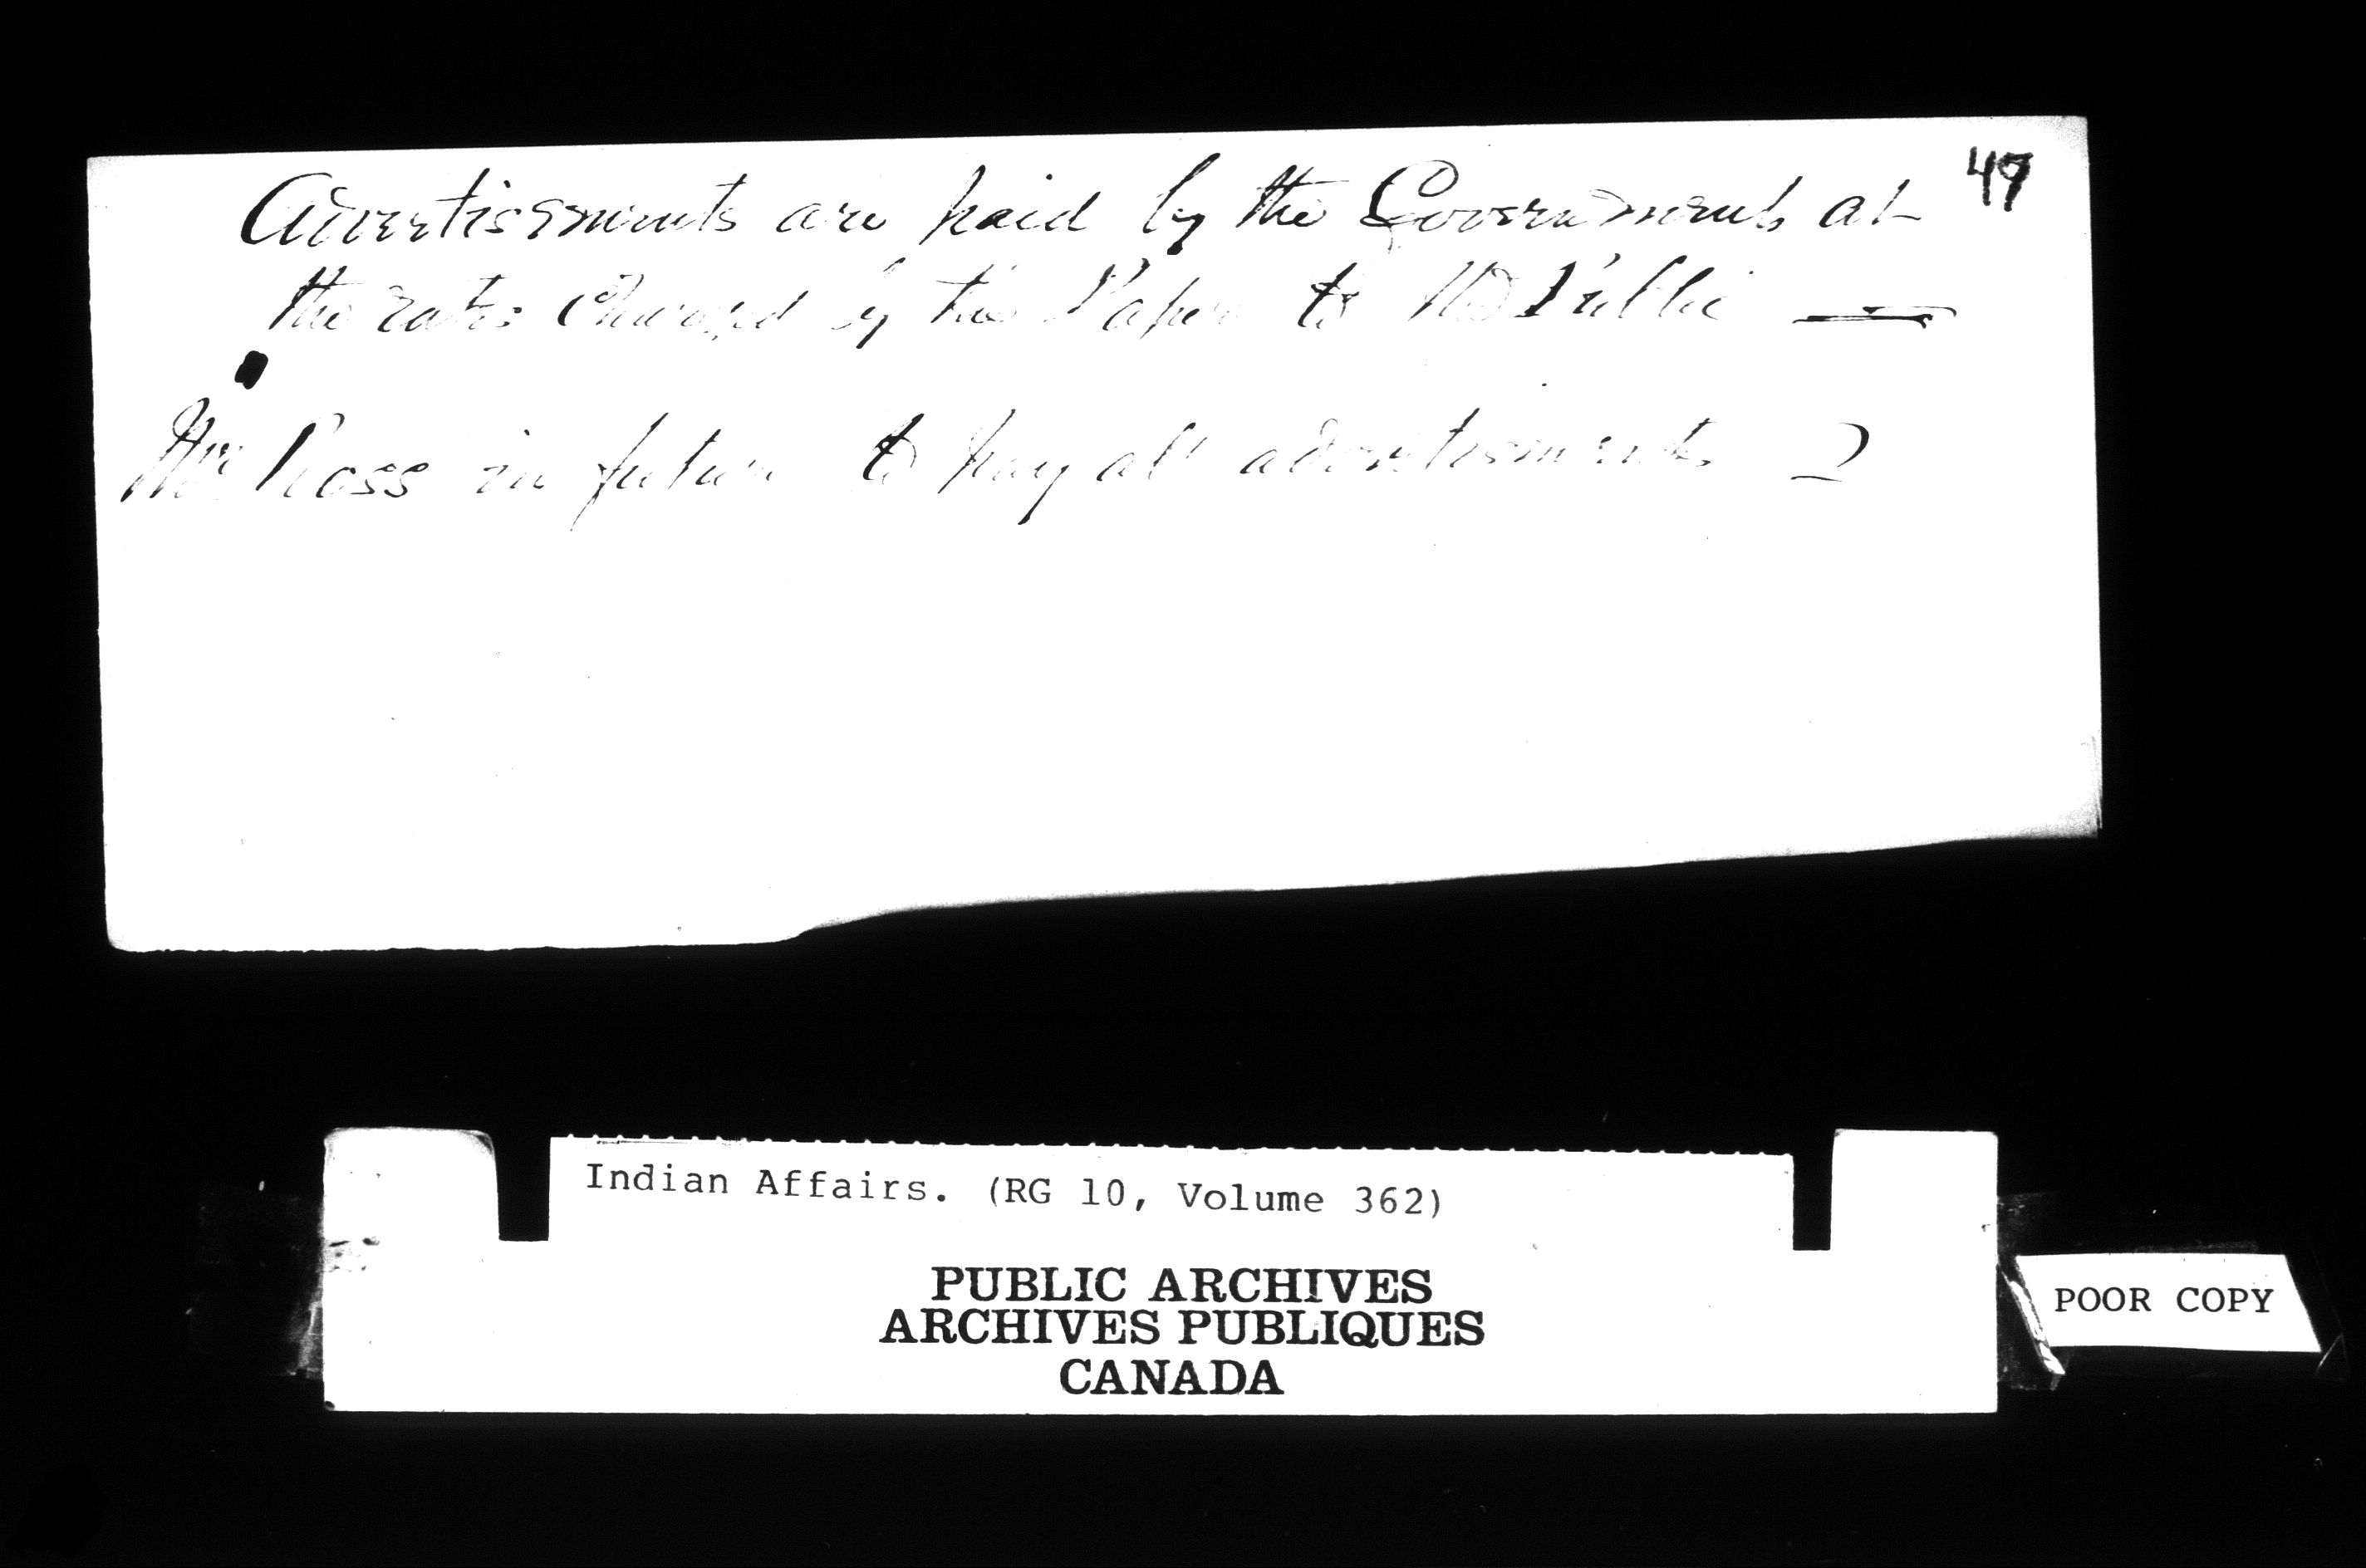 49
Advertissments are paid by the Government at
the rates Charged by the Paper to the Public —
Mr Ross in future to pay all advertisments
Indian Affairs. (RG 10, Volume 362)
PUBLIC ARCHIVES
ARCHIVES PUBLIQUES
CANADA
POOR COPY